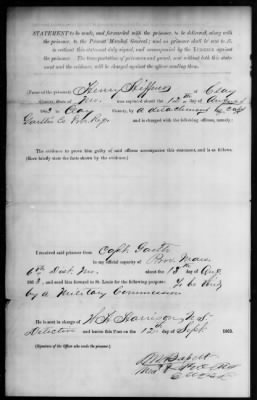 STATEMENT to be made, and forwarded with the prisoner, to be delivered, along with
the prisoner, to the Provost Marshal General; and no prisoner shall be sent to St.
Louis without this statement duly signed, and accompanied by the EVIDENCE against
the prisoner. The transportation of prisoners and guard, sent without both this state-
ment and the evidence, will be charged against the officer sending them.
(Name of the prisoner) Henry of Clay
County, State of Mo. was captured about the 12th day of August
1863 Clay County, by a detachment of Capt
Co and is charged with the following offences, namely:
The evidence to prove him guilty of said offences accompanies this statement, and is as follows:
(Here briefly state the facts shown by the evidence.)
I received said prisoner from Capt
in my official capacity of Prov. Mar.
6th Dist. Mo. about the 13th day of Aug
1863, and send him forward to St. Louis for the following purpose: To be tried
by a Military Commission
He is sent in charge of Harrison, U.S.
Detective and leaves this Post on the 12th day of Sept. 1863.
(Signature of the Officer who sends the prisoner.)